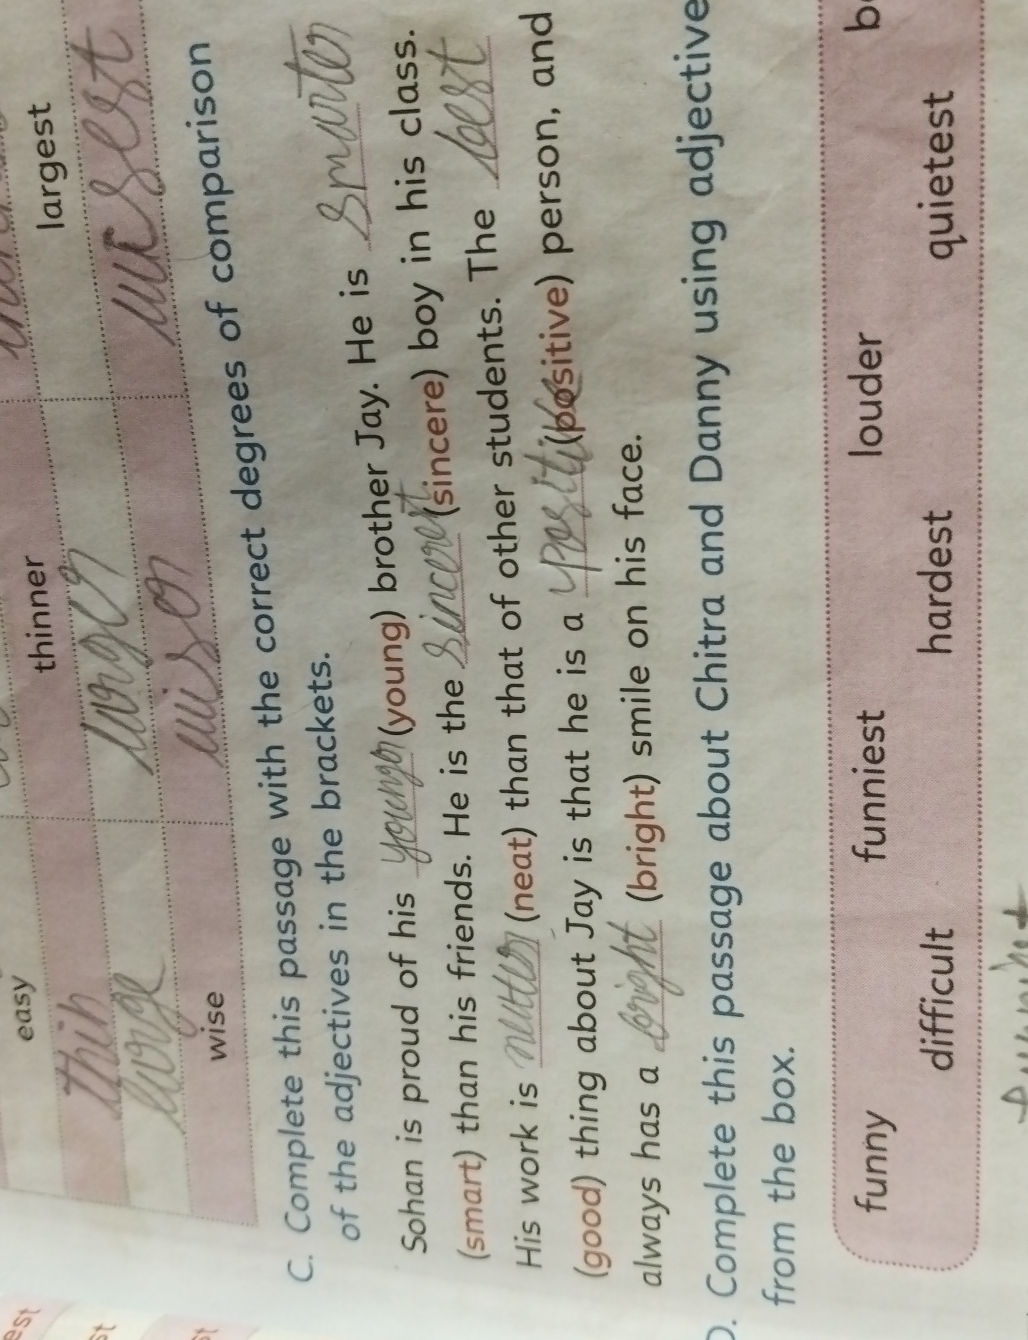 easy thinner largest
thin larger
large wiser wisest
wise
C. Complete this passage with the correct degrees of comparison
of the adjectives in the brackets.
Sohan is proud of his younger (young) brother Jay. He is smarter
(smart) than his friends. He is the sincerest (sincere) boy in his class.
His work is neater (neat) than that of other students. The best
(good) thing about Jay is that he is a positive (positive) person, and
always has a bright (bright) smile on his face.
D. Complete this passage about Chitra and Danny using adjective
from the box.
funny funniest louder b
difficult hardest quietest